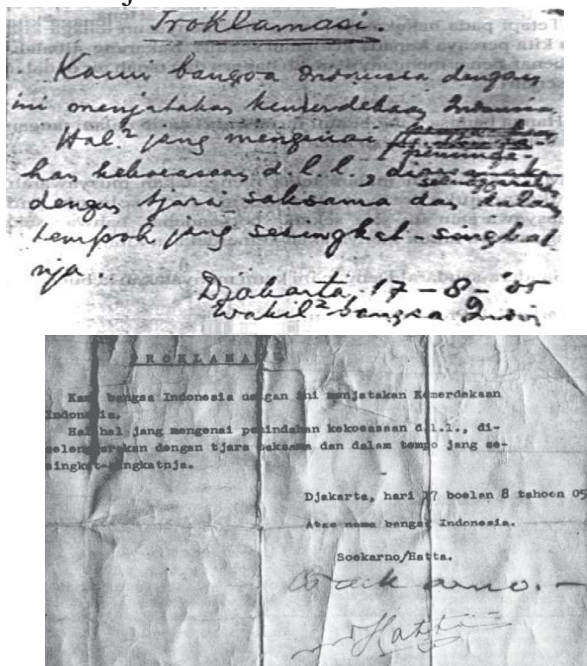 Proklamasi.
Kami bangsa Indonesia dengan
ini menjatakan kemerdekaan Indonesia.
Hal² jang mengenai
han kekoeasaan d.l.l.,
dengan tjara saksama dan dalam
tempoh jang sesingkat-singkat-
nja.
Djakarta, 17 - 8 - '05
Wakil² bangsa Indon
PROKLAMASI
Kami bangsa Indonesia dengan ini menjatakan Kemerdekaan
Indonesia.
Hal hal jang mengenai pemindahan kekoeasaan d.l.l., di-
selenggarakan dengan tjara saksama dan dalam tempo jang se-
singkat-singkatnja.
Djakarta, hari 17 boelan 8 tahoen 05
Atas nama bangsa Indonesia.
Soekarno/Hatta.
Soekarno.-
Hatta